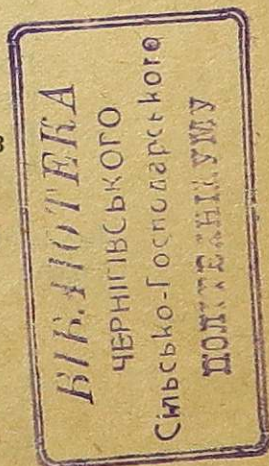 БІБЛІОТЕКА
ЧЕРНІГІВСЬКОГО
Сільсько-Господарського
ПОЛІТЕХНІКУМУ